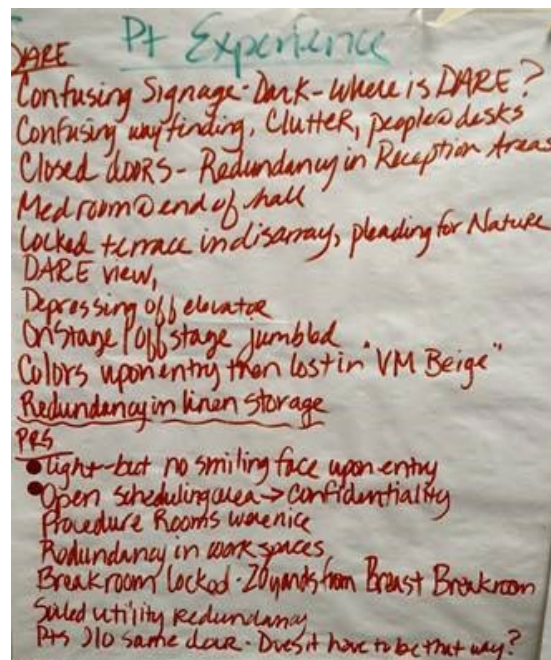 Pt Experience
DARE
Confusing Signage - Dark - Where is DARE?
Confusing wayfinding, Clutter, people@desks
Closed doors - Redundancy in Reception Areas
Med room@end of hall
Locked terrace in disarray, pleading for Nature
DARE view,
Depressing off elevator
Onstage/offstage jumbled
Colors upon entry then lost in "VM Beige"
Redundancy in linen storage
PRS
• Light - but no smiling face upon entry
• Open scheduling area → confidentiality
Procedure Rooms were nice
Redundancy in work spaces
Breakroom locked - 20 yards from Breast Breakroom
Soiled utility redundancy
Pts I/O same door - Does it have to be that way?